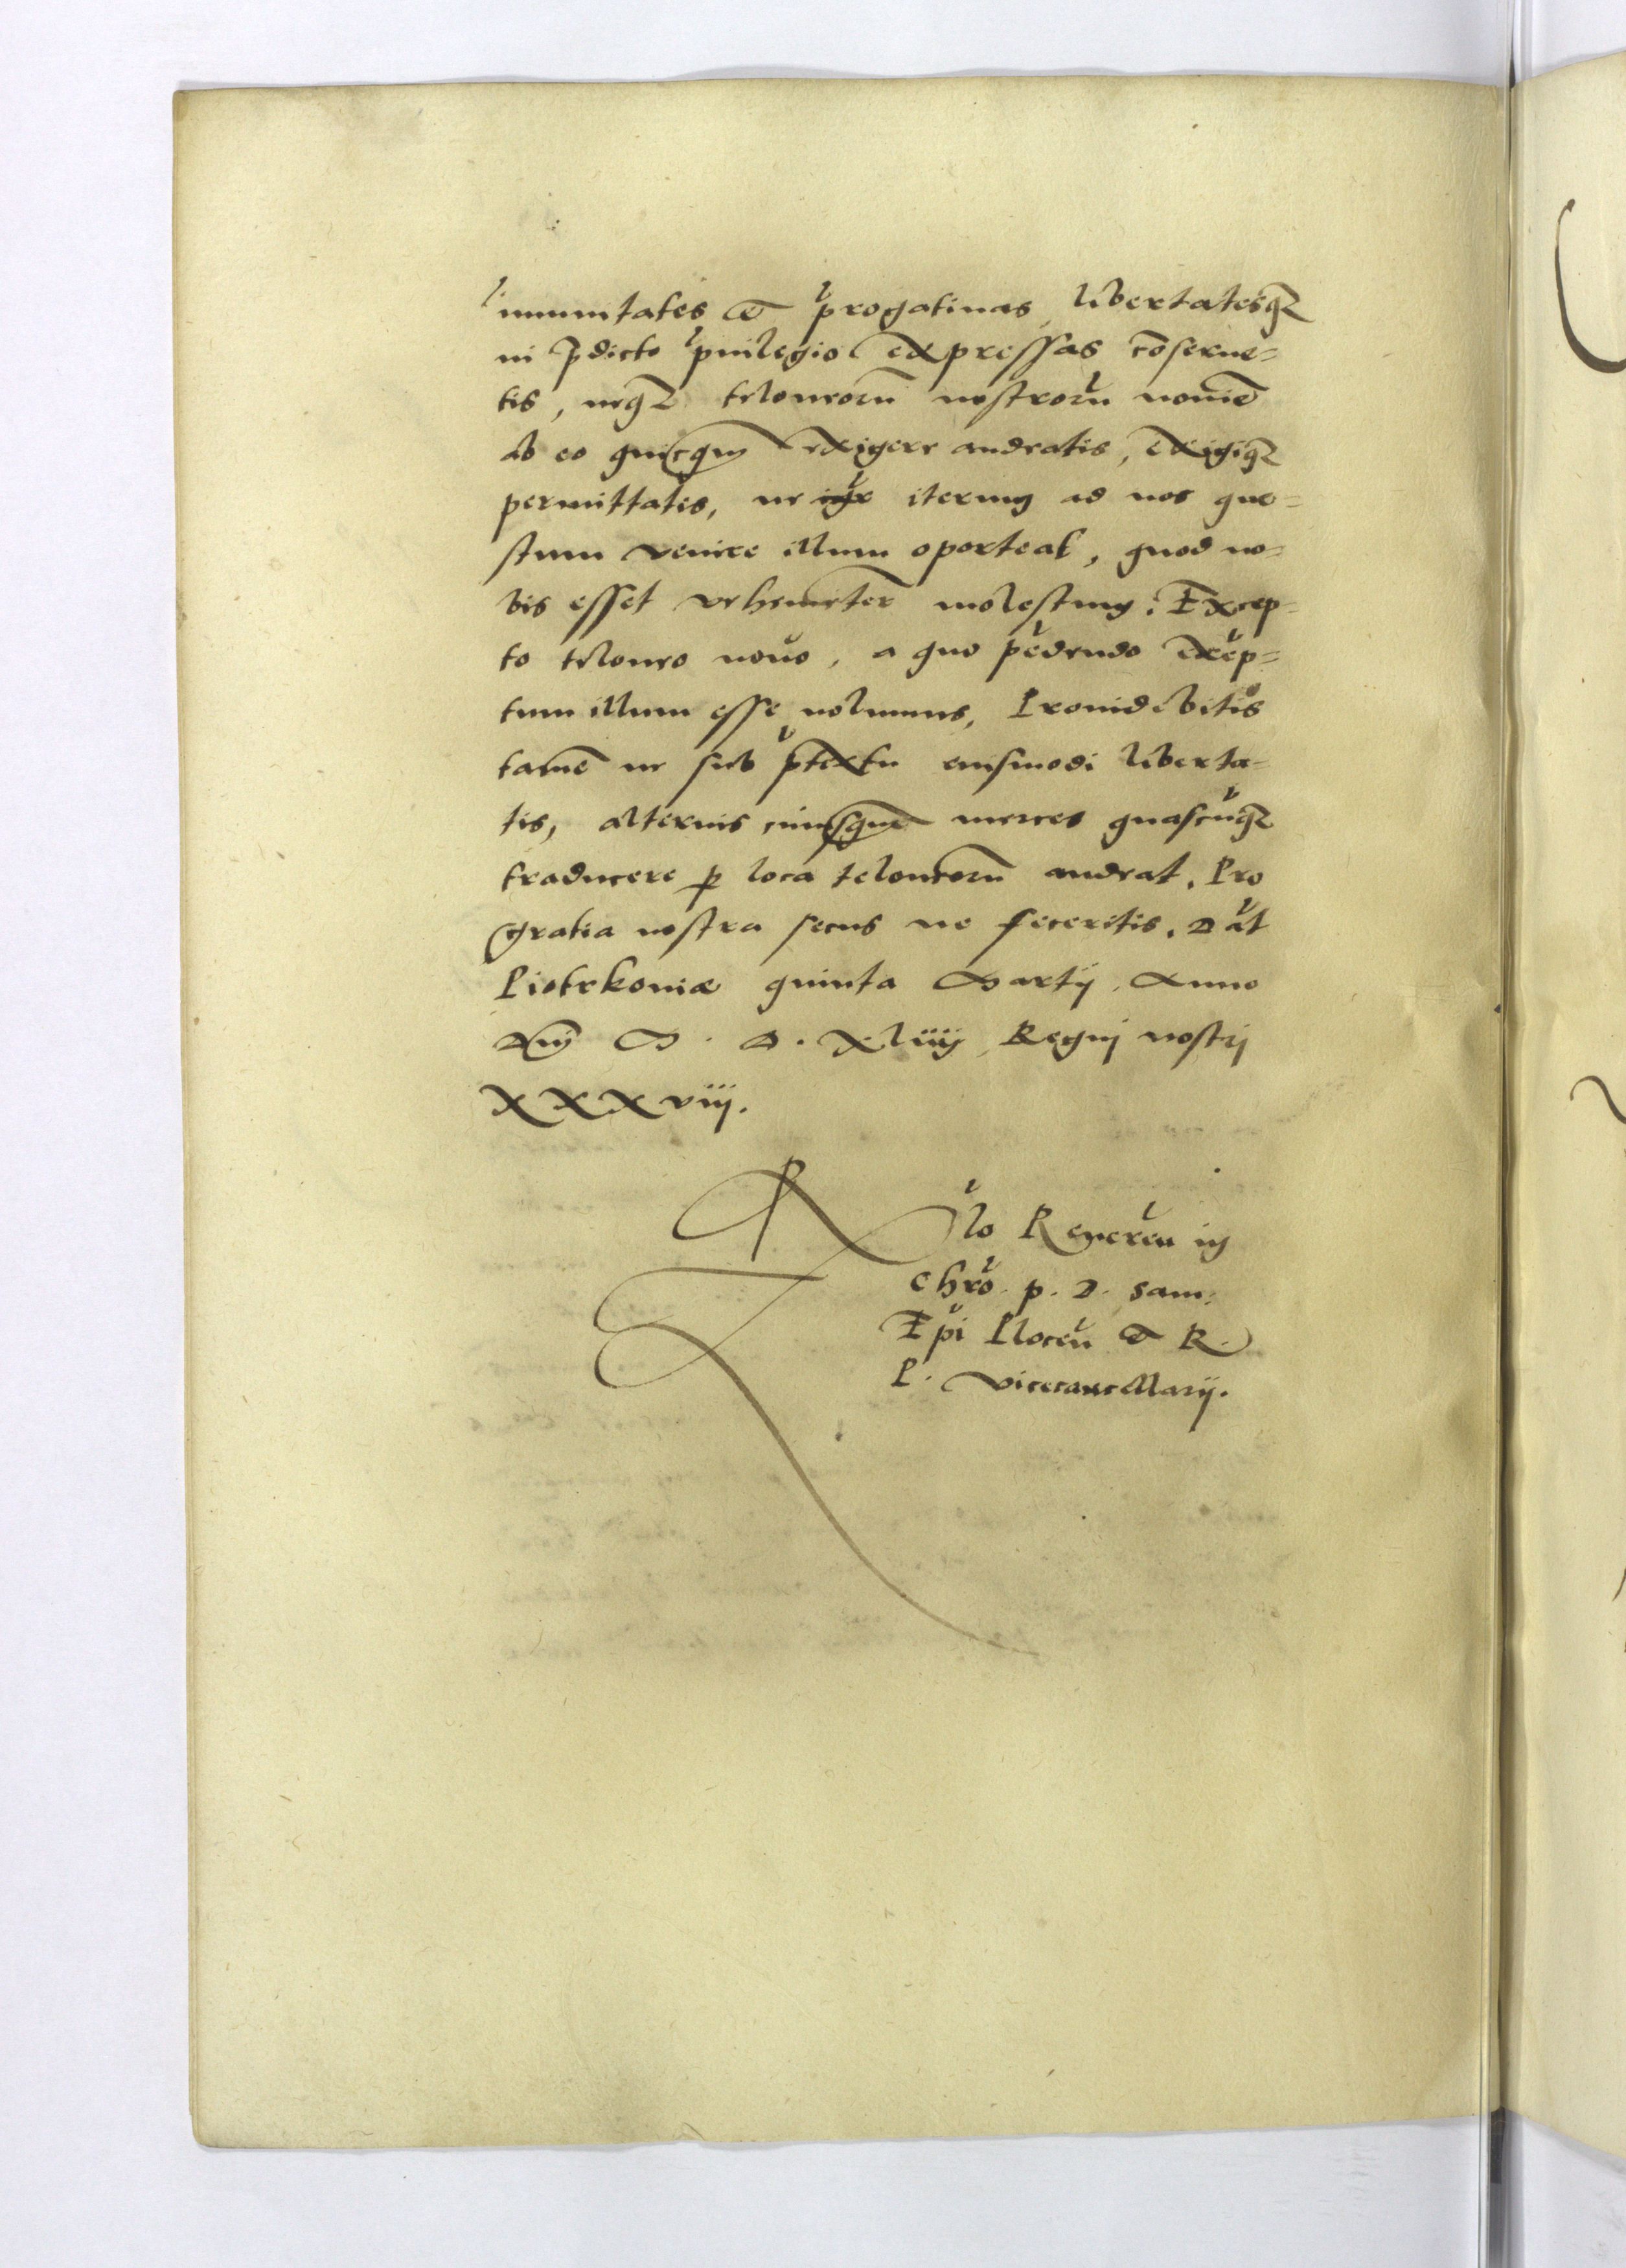 immunitates et p̃rogatiuas, libertatesq₃
in p̃dicto p̃uilegio expressas cõserue=
tis, neq₃ teloneorũ nostrorũ nomiẽ
ab eo quicq̃m exigere audeatis, exigiq₃
permittates, ne iterum ad nos que=
stum venire illum oporteat, quod no=
bis esset vehemẽter molestum. Excep=
to teloneo nouo, a quo pẽdendo exẽp=
tum illum esse nolumus, Prouidebitis
tamẽ ne sub p̃textu eiusmodi liberta=
tis, alterius cuiusq̃ue merces quascũq₃
traducere p̲ loca teloneorũ audeat. Pro
gratia nostra secus ne feceritis. Dat̃
Piotrkouiæ quinta Martij, Anno
Dñi M. D. Xliiij Regnj nostrj
XXXviij.
R̃lo Reueren̄ in
Chrõ. p. D. Sam:
Ep̃i Plocen̄ et R.
P. Vicecancellarij.